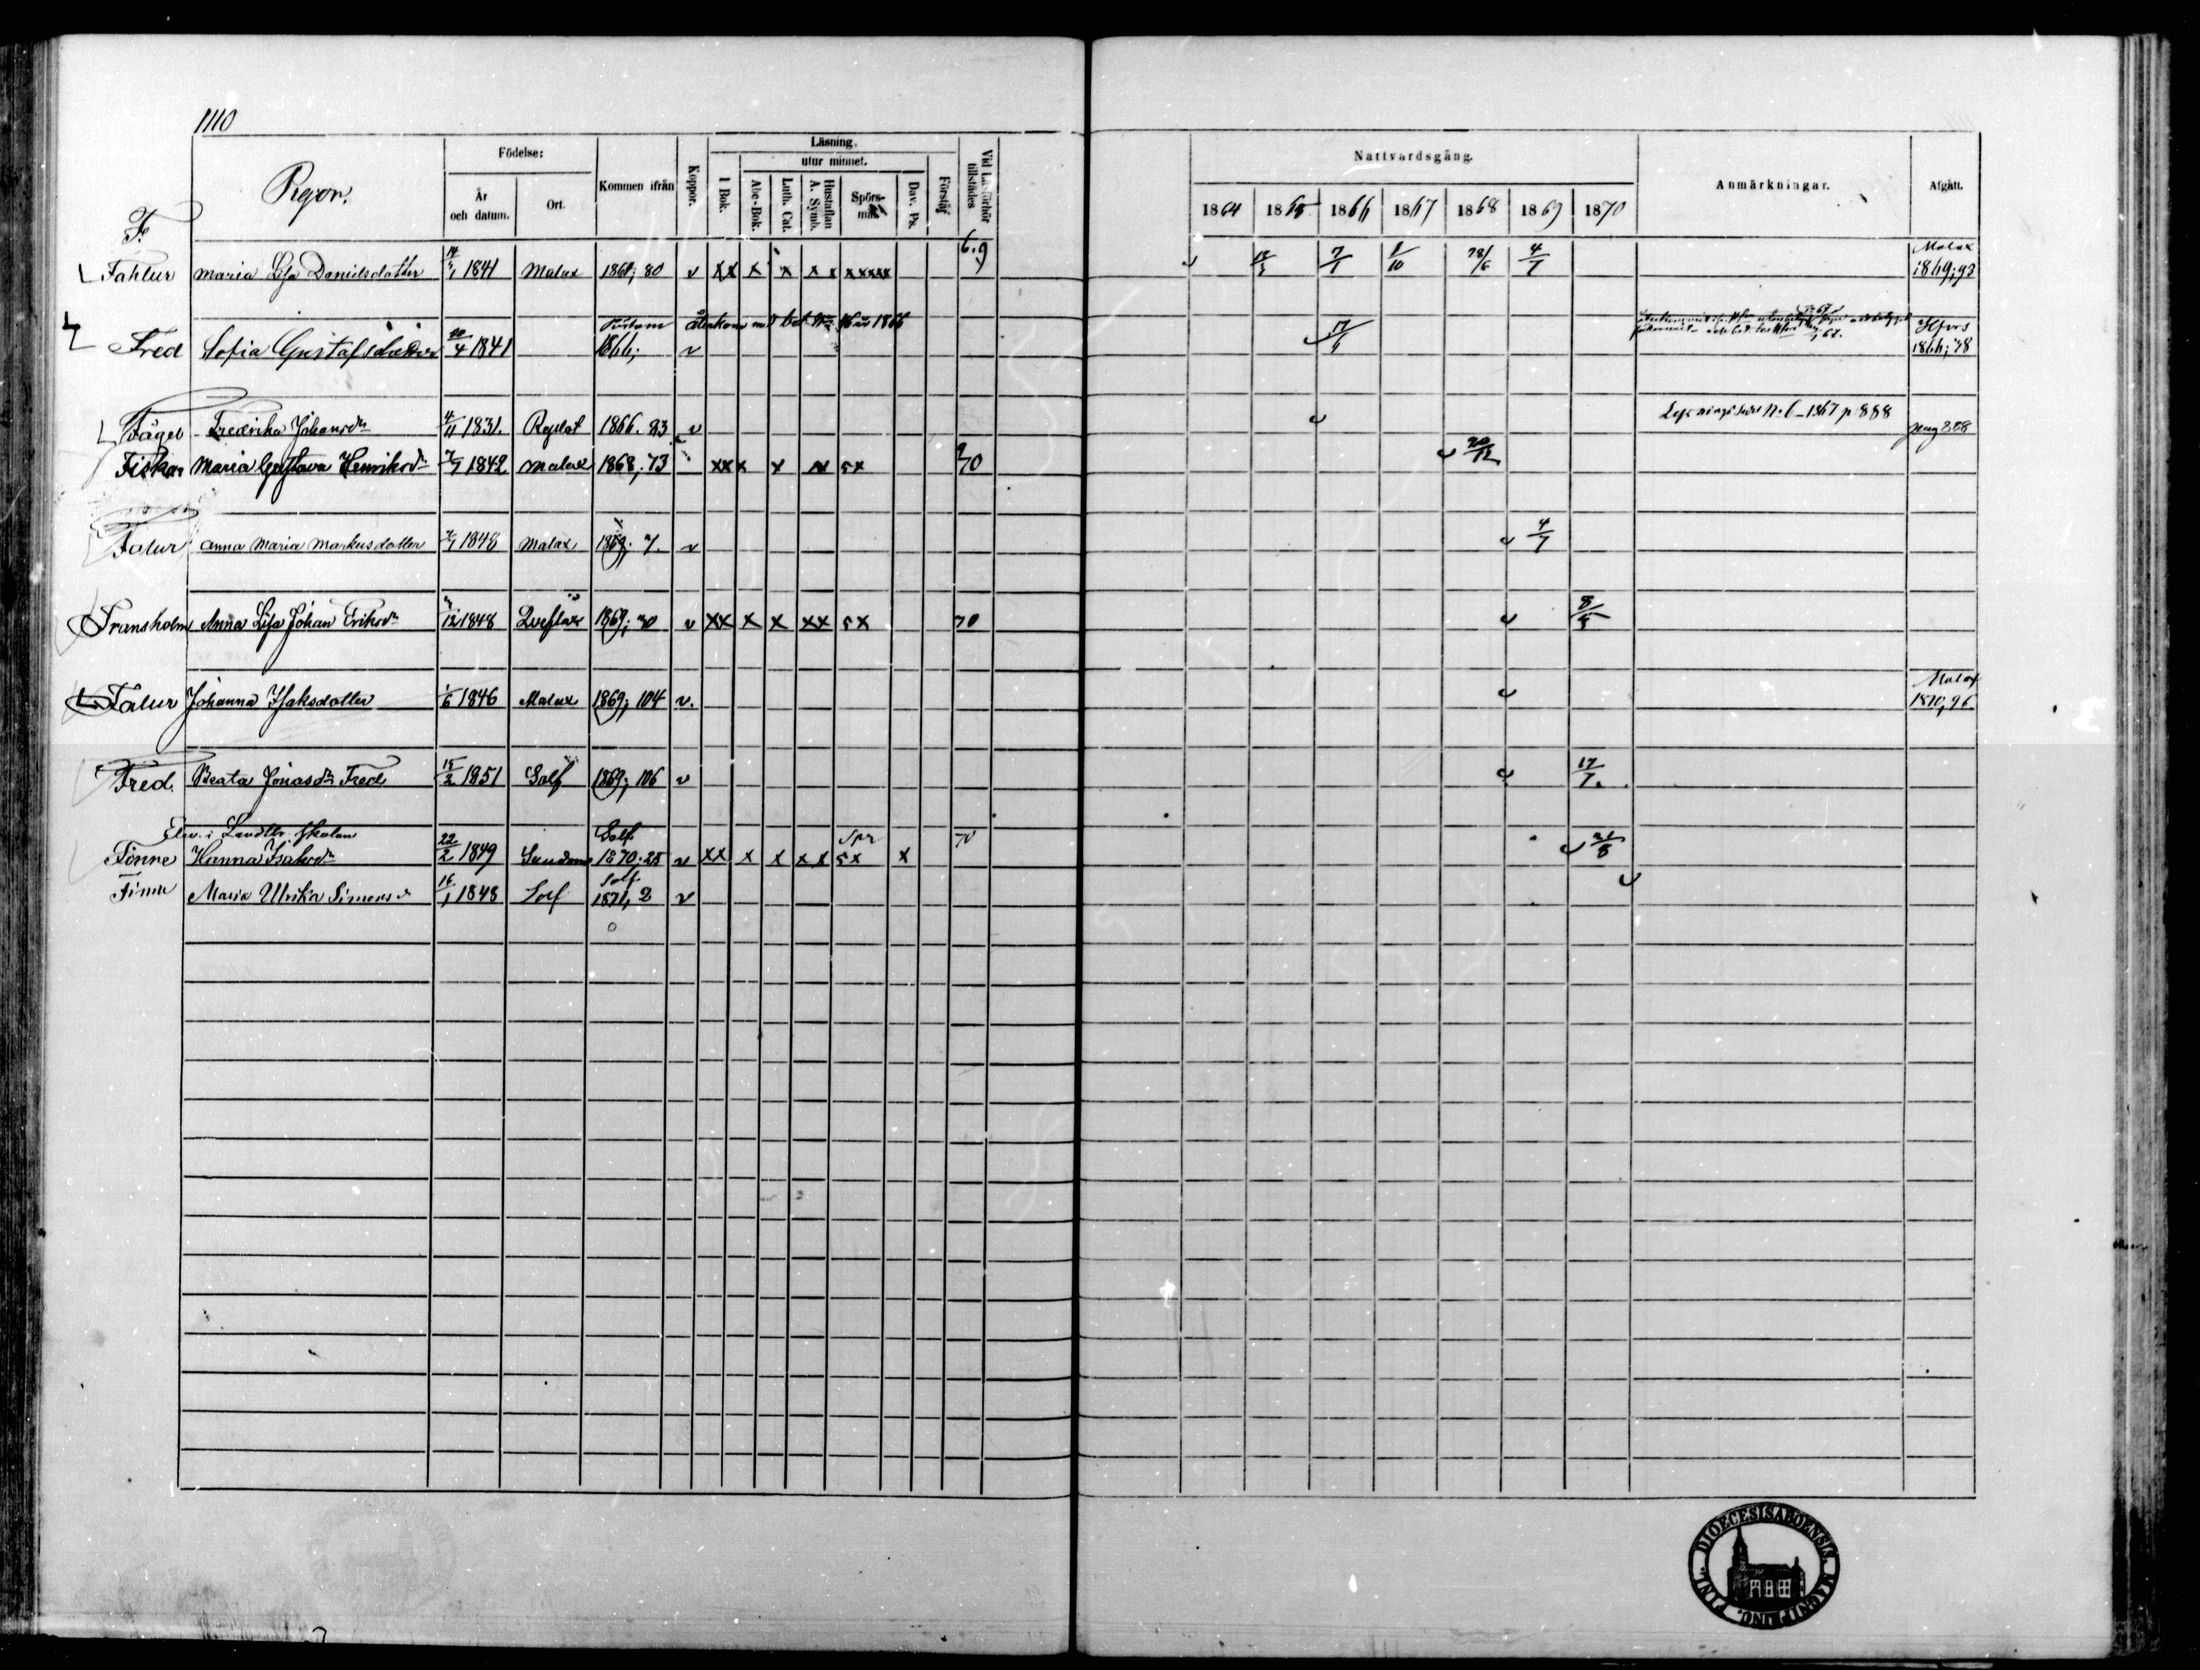 1110
Pigor.
Födelse:
År och datum.
Ort.
Kommen ifrån
Koppor.
Läsning.
utur minnet.
I Bok.
Abc-Bok.
Luth. Cat.
Hustaflan A. Symb.
Spörsmål
Dav. Ps.
Förstår
Vid Läsförhör tillstädes
Nattvardsgång.
1864 1865 1866 1867 1868 1869 1870
Anmärkningar.
Afgått.
F.
Fahlur Maria Lisa Danielsdotter 1841 Malax 80 v xx x x x x xxxxx 6.9 7/ /10 4/7 Malax 1869; 93
återkom med bet 1866
Fred Sofia Gustafsdotter 20/4 1841 1866; v 17/ Hfors 1866; 78
Fäger Fredrika Johansdr 4/11 1831. Replot 1866. 83 v 1867 p 888 pag 888
Fiskar Maria Gustava Henriksdr /7 1842 Malax 1868; 73 xx x x 5x 70 20/12
Falur Anna Maria Markusdotter /7 1848 Malax 1869; 7. v 4/7
Fransholm Anna Lisa Johan Eriksdr /12 1848 Qveflax 1869; 70 v xx x x xx 5x 70 8/5
Falur Johanna Isaksdotter 1/6 1846 Malax 1869; 104 v. Malax 1870, 96.
Fred. Beata Jonasdr Fred 15/2 1851 Solf 1869; 106 v 17/7.
Elev. i Landtbr. skolan
Finne Hanna Isaksdr 22/2 1849 Sundom Solf 1870; 25 v xx x x x x Spr 5x x 70 21/8
Finne Maria Ulrika Simonsdr 16/1 1848 Solf Solf 1871, 2 v
DIOECESIS ABOENSIS. MAGNI PRINC. FINL.